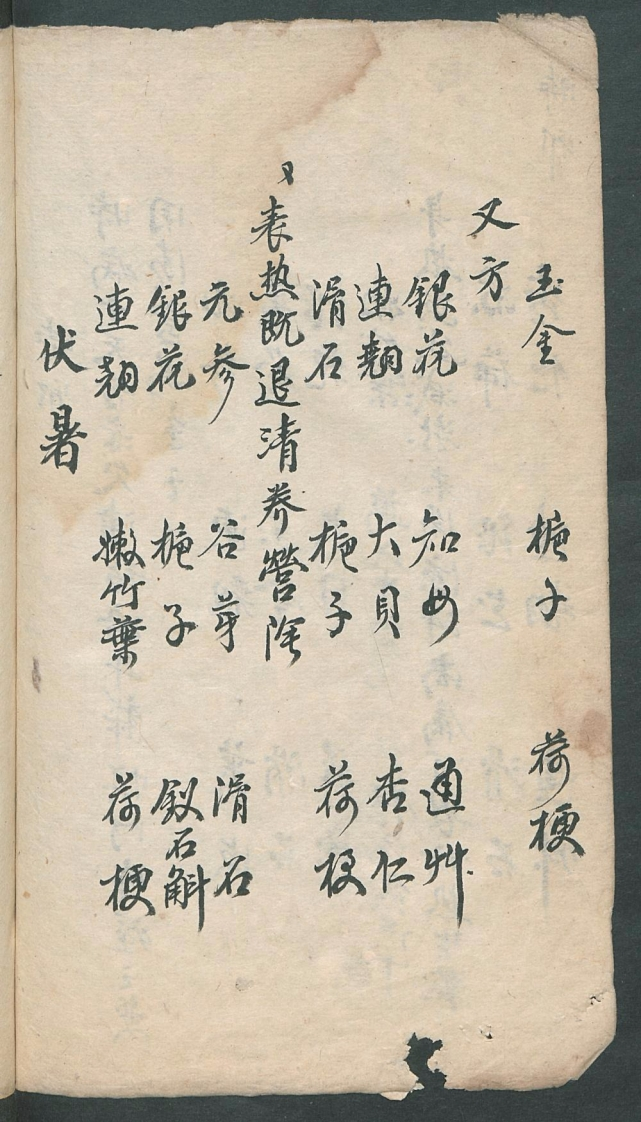 玉金 栀子 荷梗
又方
銀花 知母 通艸
連翹 大貝 杏仁
滑石 栀子 荷梗
又表热既退清养營陰
元参 谷芽 滑石
銀花 栀子 釵石斛
連翘 嫩竹葉 荷梗
伏暑